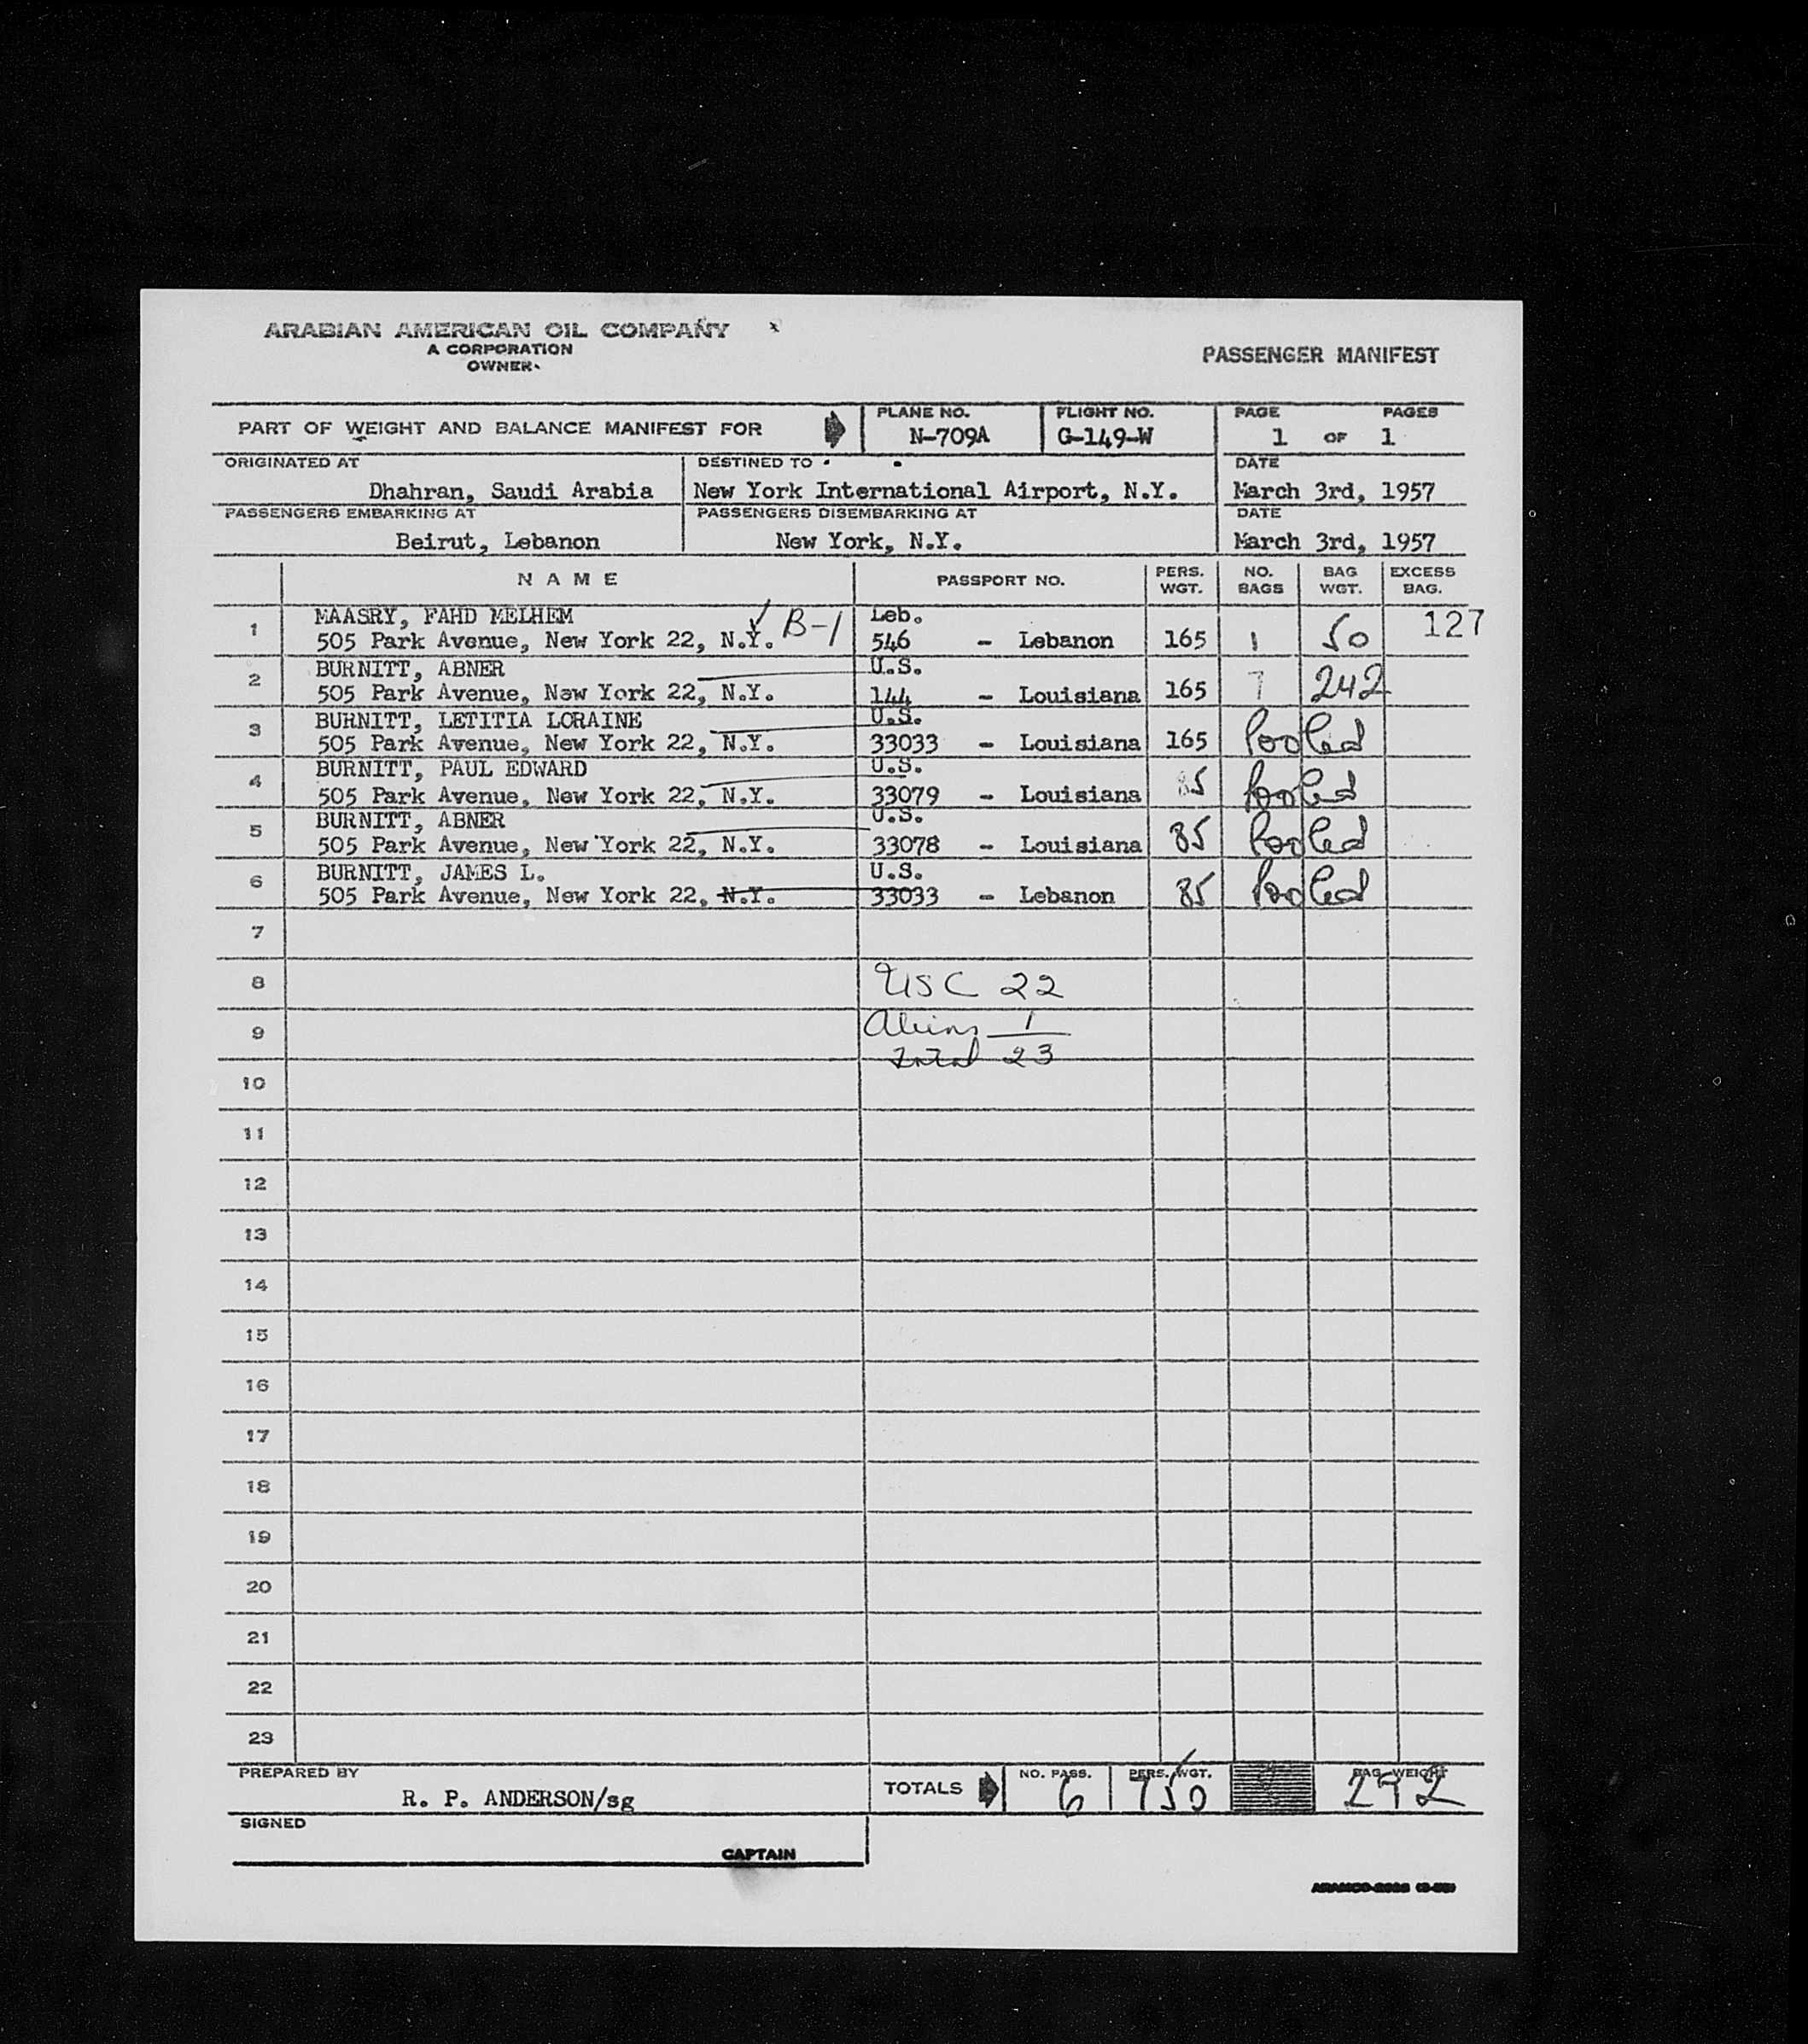 ARABIAN AMERICAN OIL COMPANY
A CORPORATION
OWNER
PASSENGER MANIFEST
PART OF WEIGHT AND BALANCE MANIFEST FOR
PLANE NO.
N-709A
FLIGHT NO.
G-149-W
PAGE PAGES
1 OF 1
ORIGINATED AT
Dhahran, Saudi Arabia
DESTINED TO
New York International Airport, N.Y.
DATE
March 3rd, 1957
PASSENGERS EMBARKING AT
Beirut, Lebanon
PASSENGERS DISEMBARKING AT
New York, N.Y.
DATE
March 3rd, 1957
NAME PASSPORT NO. PERS. WGT. NO. BAGS BAG WGT. EXCESS BAG.
MAASRY, FAHD MELHEM Leb. 127
1 505 Park Avenue, New York 22, N.Y. B-1 546 - Lebanon 165 1 50
BURNITT, ABNER U.S.
2 505 Park Avenue, New York 22, N.Y. 144 - Louisiana 165 7 242
BURNITT, LETITIA LORAINE U.S.
3 505 Park Avenue, New York 22, N.Y. 33033 - Louisiana 165 Pooled
BURNITT, PAUL EDWARD U.S.
4 505 Park Avenue, New York 22, N.Y. 33079 - Louisiana 85 Pooled
BURNITT, ABNER U.S.
5 505 Park Avenue, New York 22, N.Y. 33078 - Louisiana 85 Pooled
BURNITT, JAMES L. U.S.
6 505 Park Avenue, New York 22, N.Y. 33033 - Lebanon 85 Pooled
7
8 USC 22
9 Aliens 1
Total 23
10
11
12
13
14
15
16
17
18
19
20
21
22
23
PREPARED BY
R. P. ANDERSON/sg
TOTALS
NO. PASS.
6
PERS. WGT.
750
BAG WEIGHT
292
SIGNED
CAPTAIN